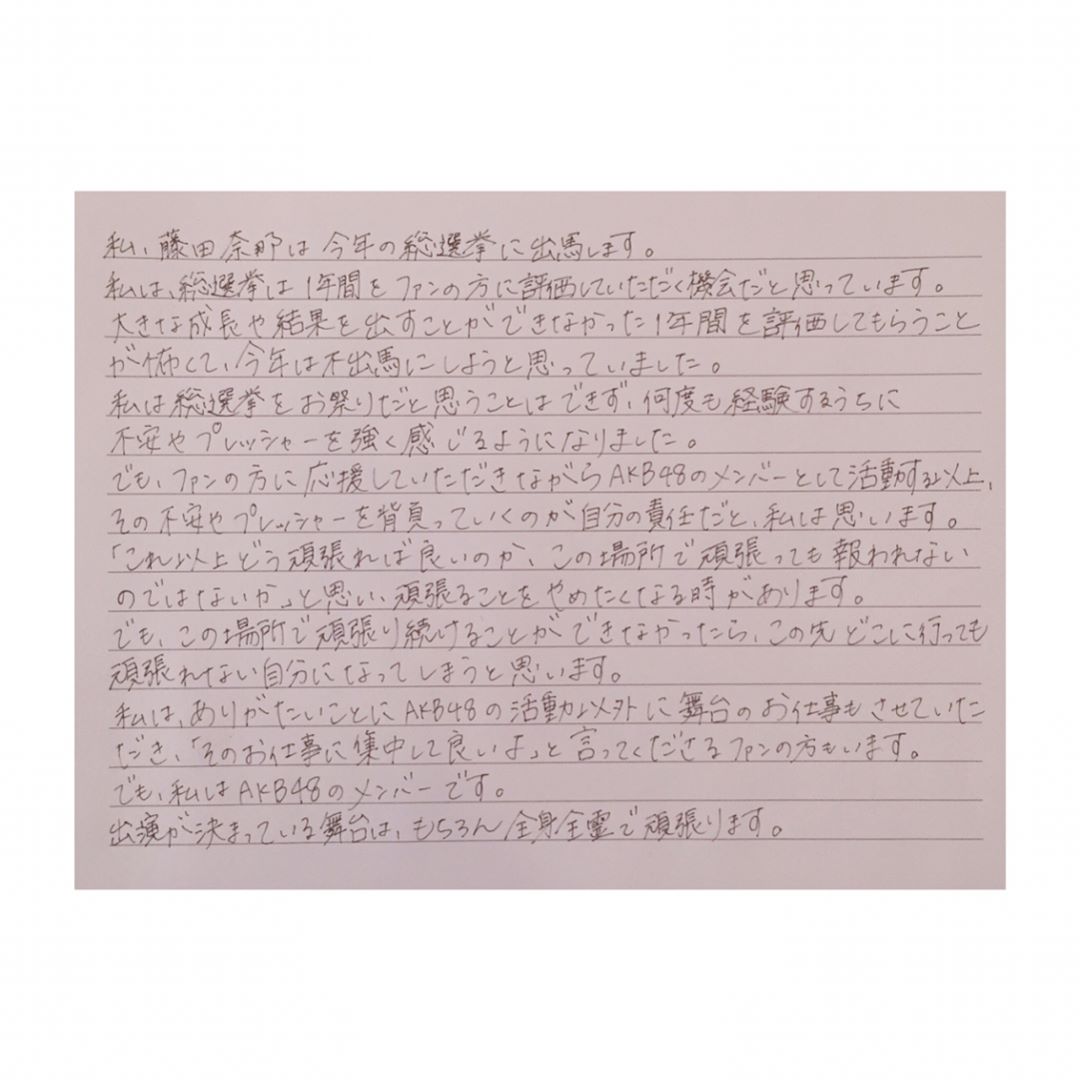 私、藤田奈那は今年の総選挙に出馬します。
私は、総選挙は1年間をファンの方に評価していただく機会だと思っています。
大きな成長や結果を出すことができなかった1年間を評価してもらうこと
が怖くて、今年は不出馬にしようと思っていました。
私は総選挙をお祭りだと思うことはできず、何度も経験するうちに
不安やプレッシャーを強く感じるようになりました。
でも、ファンの方に応援していただきながらAKB48のメンバーとして活動する以上、
その不安やプレッシャーを背負っていくのが自分の責任だと、私は思います。
「これ以上どう頑張れば良いのか、この場所で頑張っても報われない
のではないか」と思い、頑張ることをやめたくなる時があります。
でも、この場所で頑張り続けることができなかったら、この先どこに行っても
頑張れない自分になってしまうと思います。
私は、ありがたいことにAKB48の活動以外に舞台のお仕事もさせていた
だき、「そのお仕事に集中して良いよ」と言ってくださるファンの方もいます。
でも、私はAKB48のメンバーです。
出演が決まっている舞台は、もちろん全身全霊で頑張ります。